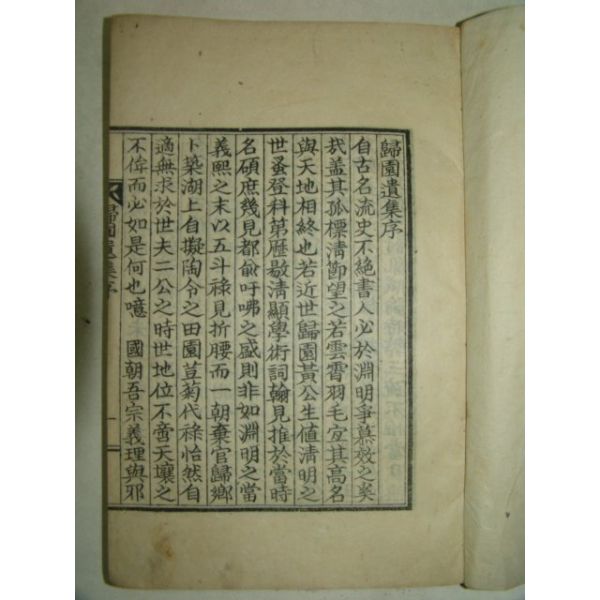 歸園遺集序
自古名流史不絶書人必於淵明爭慕效之矣
哉盖其孤標淸節望之若雲霄羽毛宜其高名
與天地相終也若近世歸園黃公生値淸明之
世蚤登科第歷敭淸顯學術詞翰見推於當時
名碩庶幾見都兪吁咈之盛則非如淵明之當
義熙之末以五斗祿見折腰而一朝棄官歸鄕
卜築湖上自擬陶令之田園荳菊代祿怡然自
適無求於世夫二公之時世地位不啻天壤之
不侔而必如是何也噫 國朝吾宗義理與邪
歸園遺集序
一